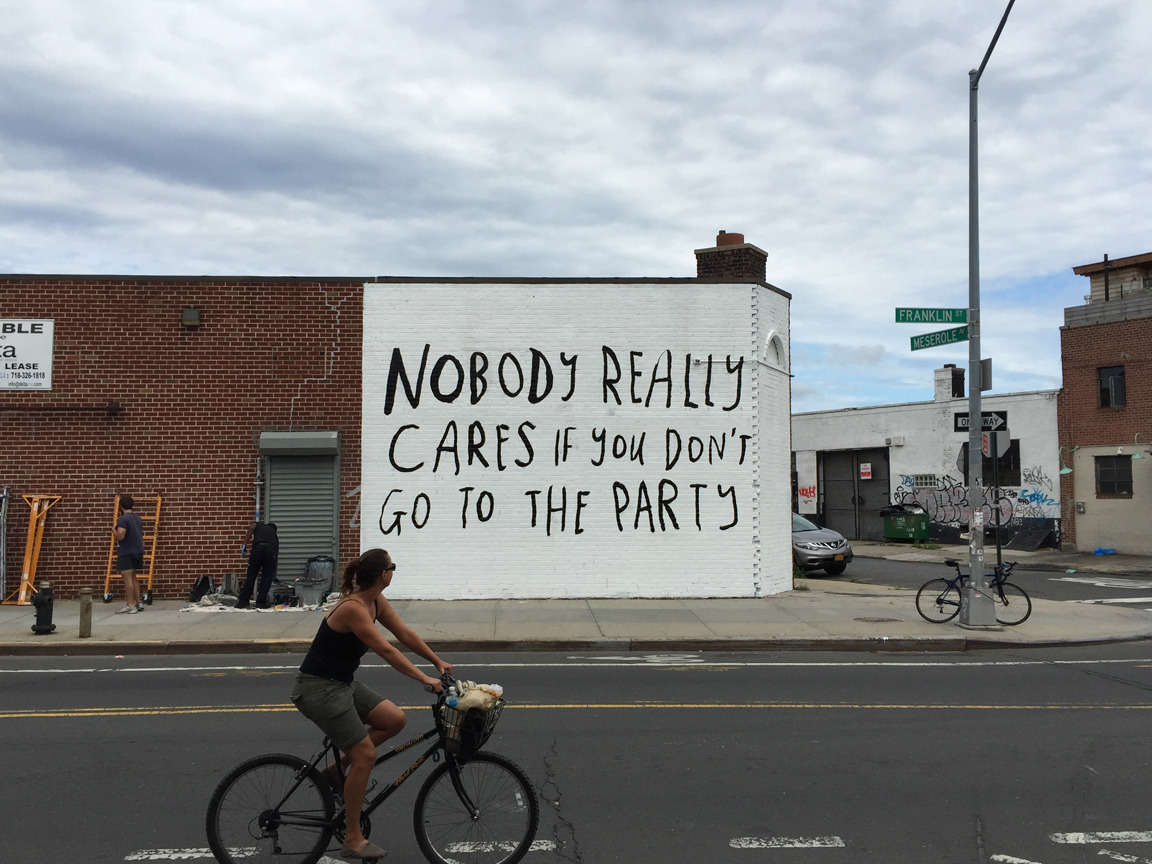 BLE
ta
LEASE
718-326-1818
NOBODY REALLY
CARES IF YOU DON'T
GO TO THE PARTY
FRANKLIN ST
MESEROLE AV
ONE WAY